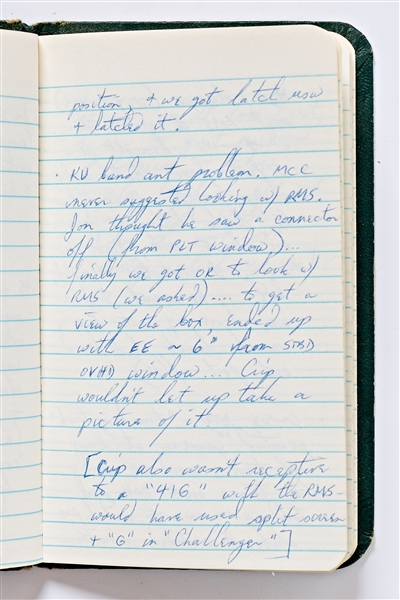 position, + we got latch now
+ latched it.
· KU band ant problem. MCC
never suggested looking w/ RMS.
Jon thought he saw a connector
off (from PLT window)...
finally we got OK to look w/
RMS (we asked).... to get a
view of the box, ended up
with EE ~ 6" from STBD
OVHD window... Crip
wouldn't let up take a
picture of it
[Crip also wasn't receptive
to a "41G" with the RMS -
would have used split screen
+ "G" in "Challenger"]